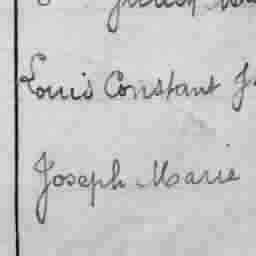 Louis Constant J
Joseph Marie